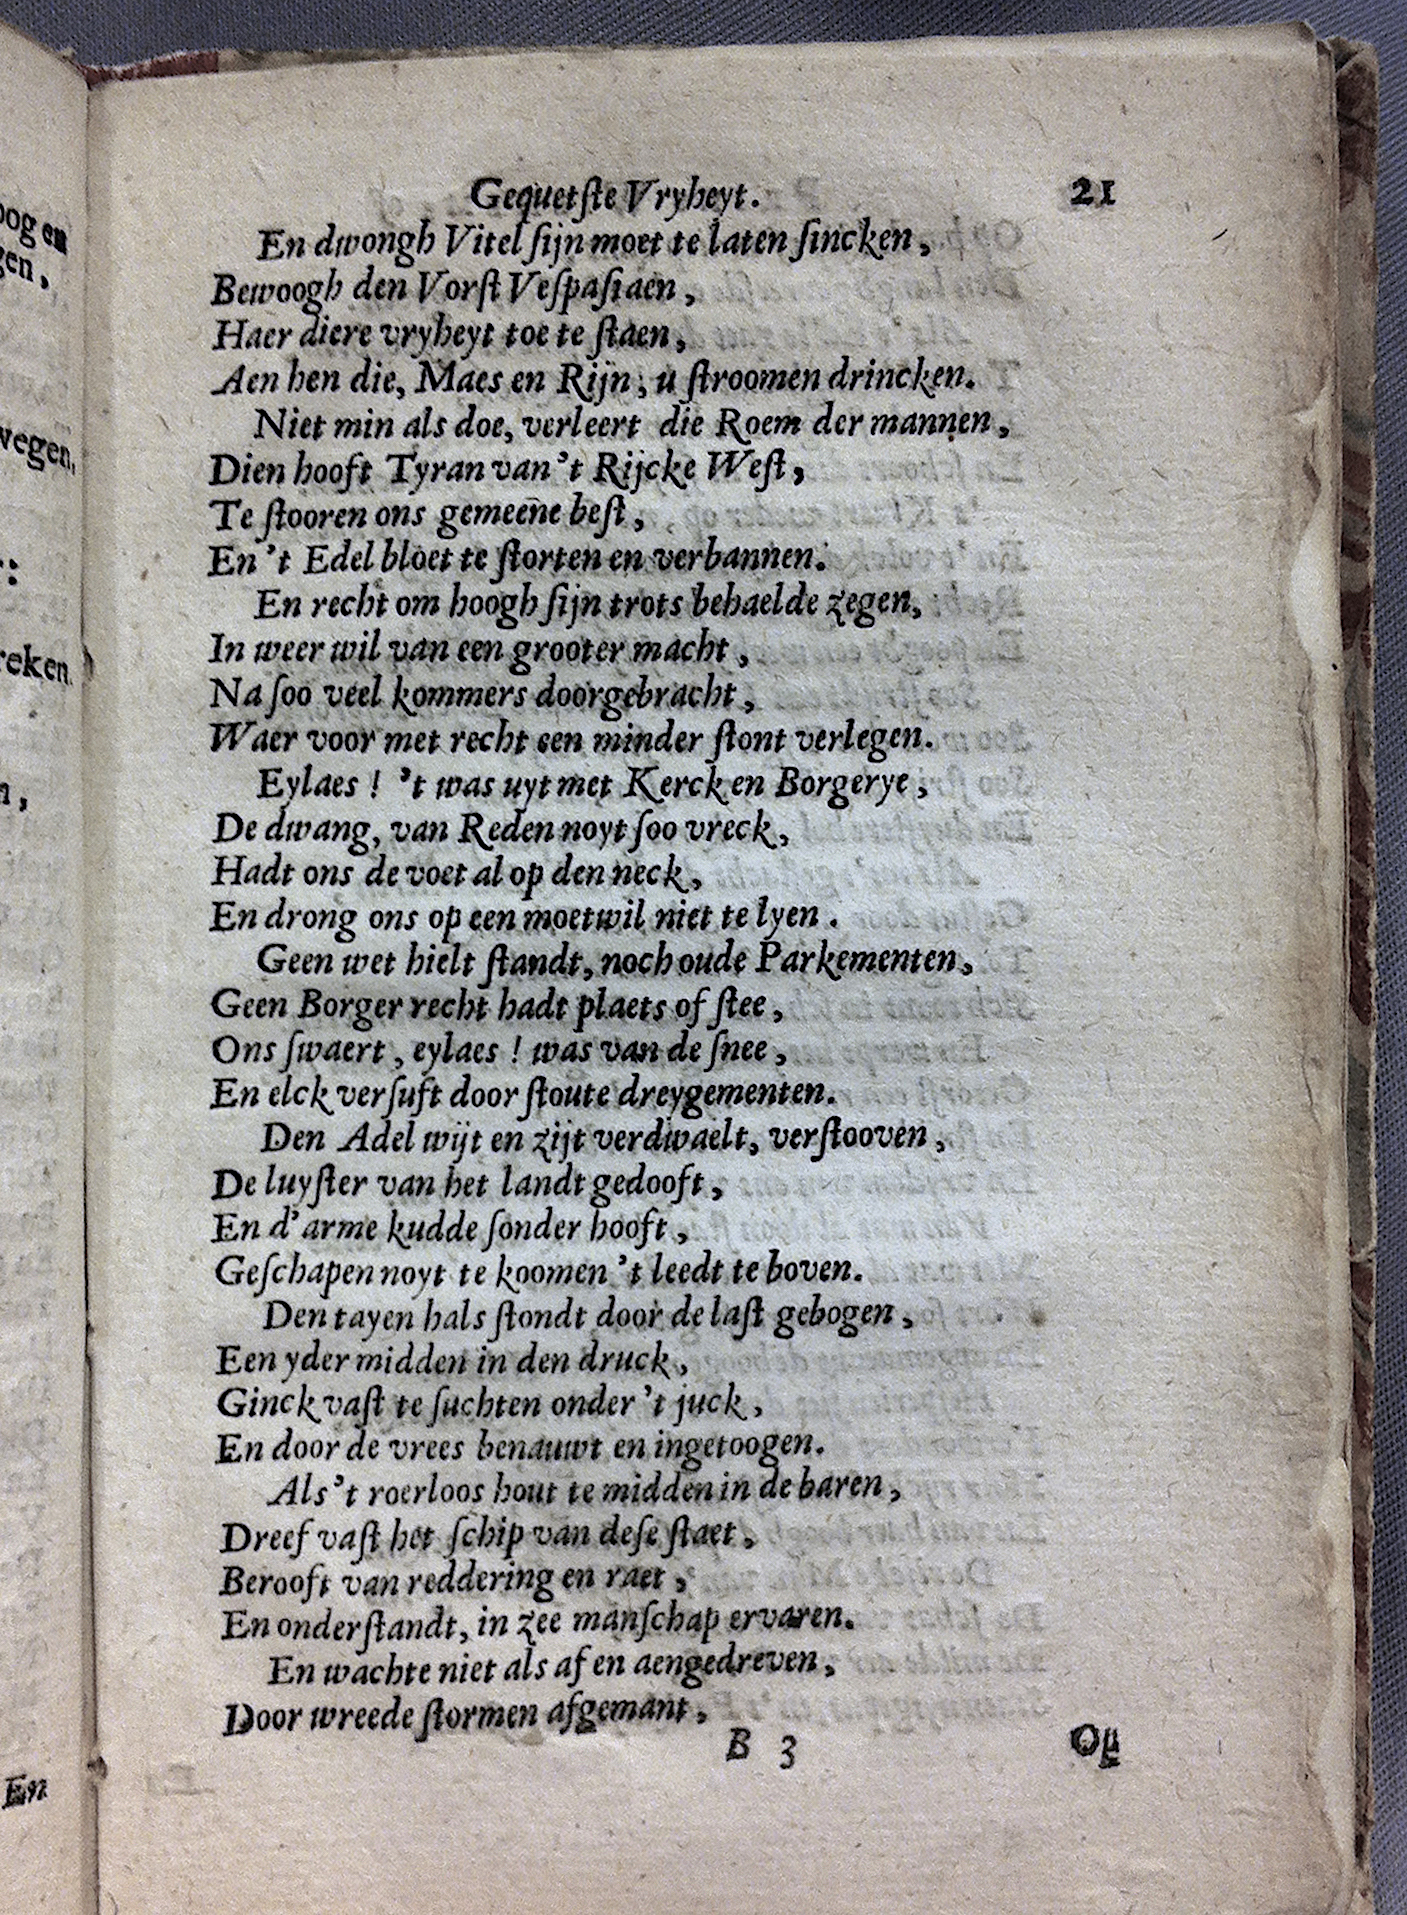 Gequetſte Vryheyt. 21
En dwongh Vitel ſijn moet te laten ſincken,
Bewoogh den Vorſt Veſpaſiaen,
Haer diere vryheyt toe te ſtaen,
Aen hen die, Maes en Rijn, u ſtroomen drincken.
Niet min als doe, verleert die Roem der mannen,
Dien hooft Tyran van 't Rijcke Weſt,
Te ſtooren ons gemeene beſt,
En 't Edel bloet te ſtorten en verbannen.
En recht om hoogh ſijn trots behaelde zegen,
In weer wil van een grooter macht,
Na ſoo veel kommers doorgebracht,
Waer voor met recht een minder ſtont verlegen.
Eylaes! 't was uyt met Kerck en Borgerye,
De dwang, van Reden noyt ſoo vreck,
Hadt ons de voet al op den neck,
En drong ons op een moetwil niet te lyen.
Geen wet hielt ſtandt, noch oude Parkementen,
Geen Borger recht hadt plaets of ſtee,
Ons ſwaert, eylaes! was van de ſnee,
En elck verſuft door ſtoute dreygementen.
Den Adel wijt en zijt verdwaelt, verſtooven,
De luyſter van het landt gedooft,
En d'arme kudde ſonder hooft,
Geſchapen noyt te koomen 't leedt te boven.
Den tayen hals ſtondt door de laſt gebogen,
Een yder midden in den druck,
Ginck vaſt te ſuchten onder 't juck,
En door de vrees benauwt en ingetoogen.
Als 't roerloos hout te midden in de baren,
Dreef vaſt het ſchip van deſe ſtaet,
Berooft van reddering en raet,
En onderſtandt, in zee manſchap ervaren.
En wachte niet als af en aengedreven,
Door wreede ſtormen afgemant,
B 3
ogen
gen,
wegen,
reken.
n,
En